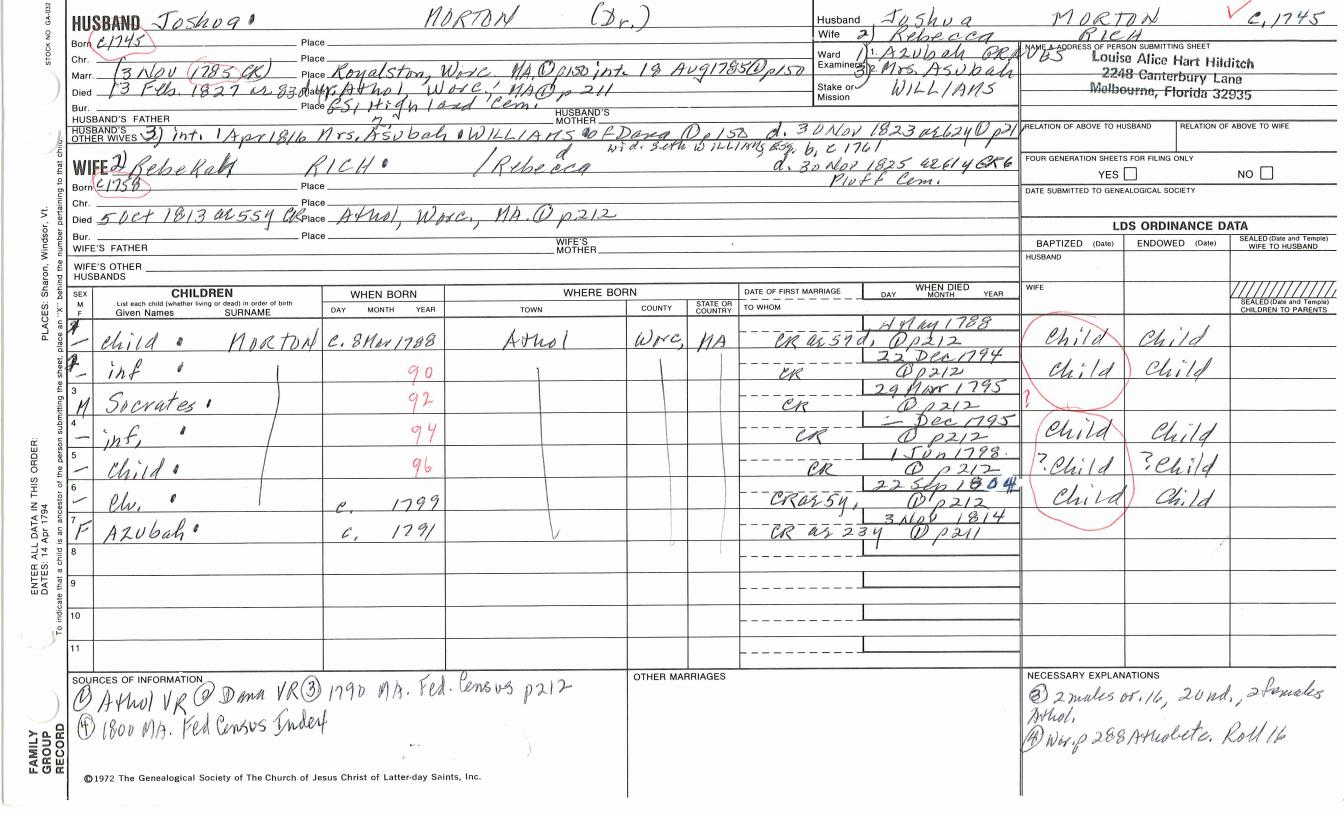 STOCK NO. GA-032
PLACES: Sharon, Windsor, Vt.
ENTER ALL DATA IN THIS ORDER:
DATES: 14 Apr 1794
To indicate that a child is an ancestor of the person submitting the sheet, place an "X" behind the number pertaining to that child.
FAMILY GROUP RECORD
HUSBAND Joshua MORTON (Dr.)
Born c1745 Place
Chr. Place
Marr. (3 Nov 1785 CR) Place Royalston, Worc. MA. ① p150 int. 18 Aug 1785 ② p150
Died 13 Feb. 1827 Place Athol, Worc., MA ① p 211
Bur. Place GS1 Highland Cem.
HUSBAND'S FATHER HUSBAND'S MOTHER
HUSBAND'S OTHER WIVES 3) int. 1 Apr 1816 Mrs. Asubah WILLIAMS of Dana ① p150 d. 30 Nov 1823 ae 62y ①
wid. Seth WILLIAMS Esq. b. c 1761
WIFE 2) Rebekah RICH / Rebecca d. 30 Nov 1825 ae 61y GR6
Born c1758 Place Pluff Cem.
Chr. Place
Died 5 Oct 1813 ae 55y CR Place Athol, Worc., MA. ① p212
Bur. Place
WIFE'S FATHER WIFE'S MOTHER
WIFE'S OTHER HUSBANDS
Husband Joshua MORTON c. 1745
Wife 2) Rebecca RICH
Ward 1) Azubah GRAVES
Examiners 3) Mrs. Asubah
Stake or Mission WILLIAMS
NAME & ADDRESS OF PERSON SUBMITTING SHEET
Louise Alice Hart Hilditch
2248 Canterbury Lane
Melbourne, Florida 32935
RELATION OF ABOVE TO HUSBAND RELATION OF ABOVE TO WIFE
FOUR GENERATION SHEETS FOR FILING ONLY
YES NO
DATE SUBMITTED TO GENEALOGICAL SOCIETY
LDS ORDINANCE DATA
BAPTIZED (Date) ENDOWED (Date) SEALED (Date and Temple) WIFE TO HUSBAND
HUSBAND
WIFE
SEALED (Date and Temple) CHILDREN TO PARENTS
SEX M F CHILDREN WHEN BORN WHERE BORN DATE OF FIRST MARRIAGE WHEN DIED
List each child (whether living or dead) in order of birth
Given Names SURNAME DAY MONTH YEAR TOWN COUNTY STATE OR COUNTRY TO WHOM DAY MONTH YEAR
4 May 1788
1 – child MORTON c. 8 Mar 1788 Athol Worc, MA CR ae 57d, ① p212 Child Child
22 Dec 1794
2 – inf 90 CR ① p212 Child Child
29 Mar 1795
3 M Socrates 92 CR ① p212 ?
– Dec 1795
4 – inf, 94 CR ① p212 Child Child
1 Jun 1798
5 – Child 96 CR ① p212 ? Child ? Child
22 Sep 1804
6 – Ch. c. 1799 CR ae 5y, ① p212 Child Child
3 Nov 1814
7 F Azubah c. 1791 CR ae 23y ① p211
8
9
10
11
SOURCES OF INFORMATION
① Athol VR ② Dana VR ③ 1790 MA. Fed. Census p212
④ 1800 MA. Fed Census Index
©1972 The Genealogical Society of The Church of Jesus Christ of Latter-day Saints, Inc.
OTHER MARRIAGES
NECESSARY EXPLANATIONS
③ 2 males ov. 16, 2 und., 2 females
Athol.
④ Wor. p 288 Athol Roll 16